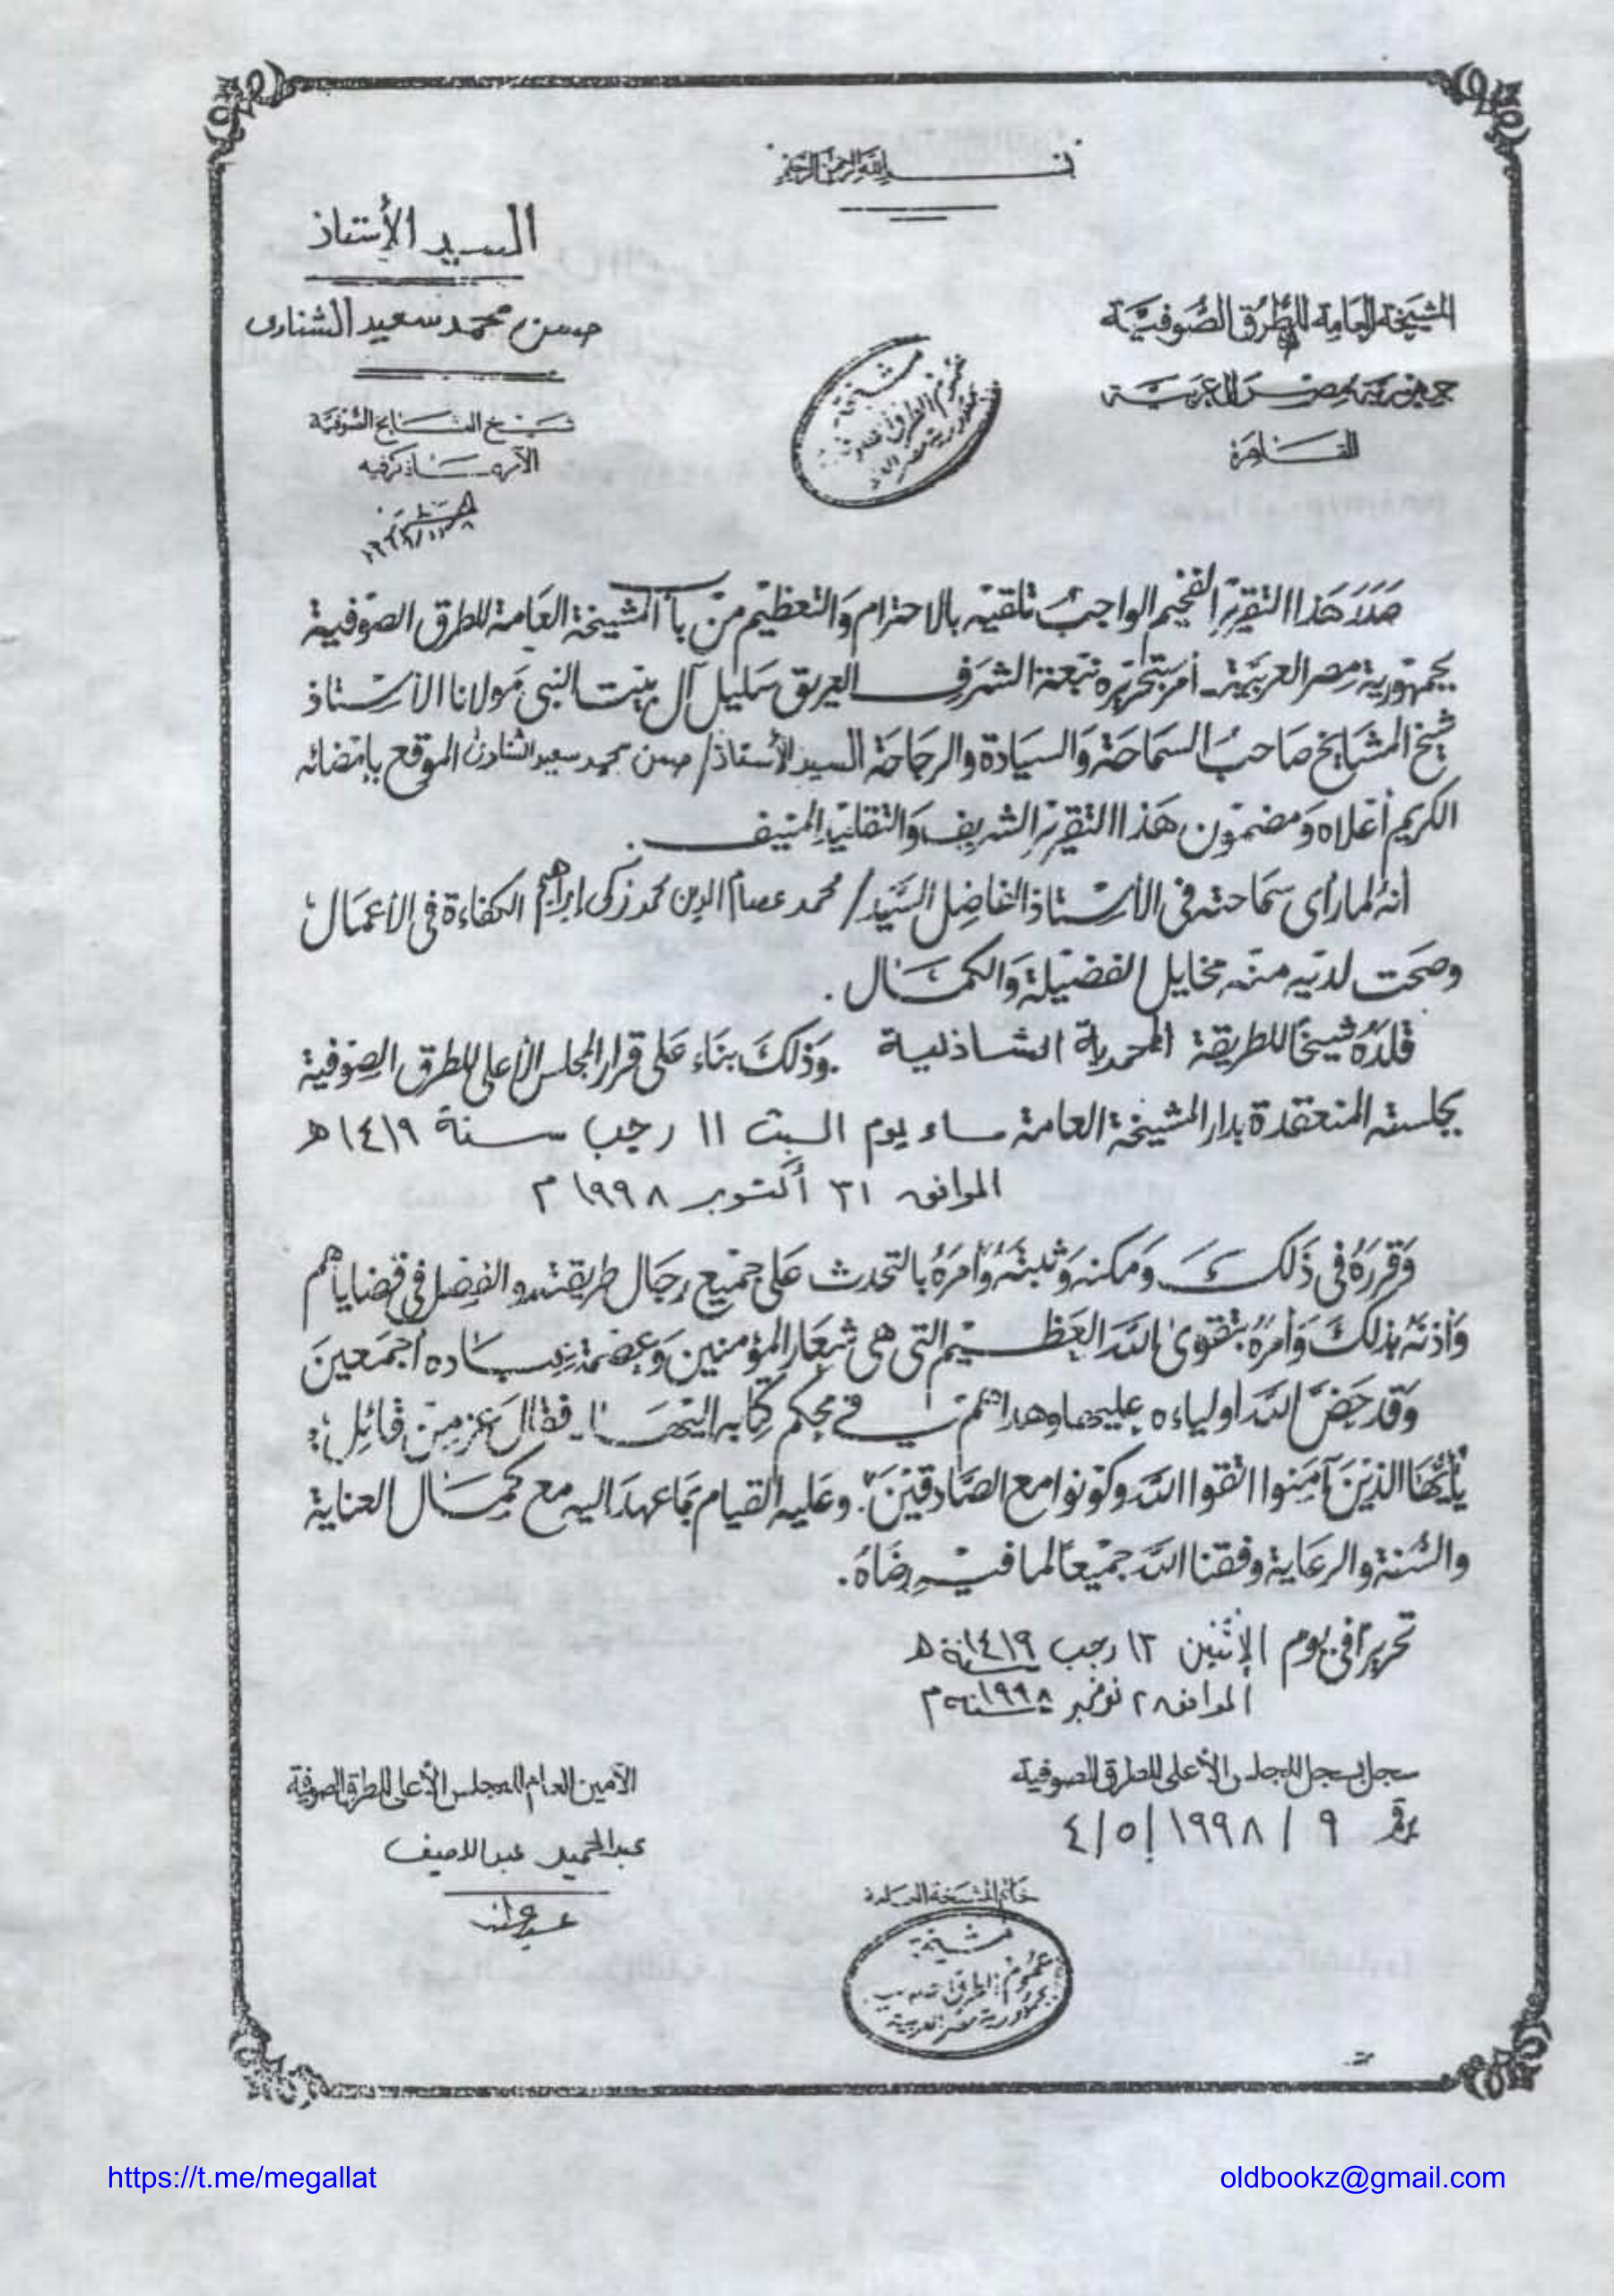 بسم الله الرحمن الرحيم
المشيخة العامة للطرق الصوفية
جمهورية مصر العربية
القاهرة
السيد الأستاذ
حسن محمد سعيد الشناوى
شيخ المشايخ الصوفية
مشيخة
عموم الطرق الصوفية
بجمهورية مصر
صدر هذا التقرير الفخيم الواجب تلقيه بالاحترام والتعظيم من باب المشيخة العامة للطرق الصوفية
بجمهورية مصر العربية - أمر بتحريره نبعة الشرف العريق سليل آل بيت النبى مولانا الأستاذ
شيخ المشايخ صاحب السماحة والسيادة والرجاحة السيد الأستاذ/ حسن محمد سعيد الشناوى الموقع بامضائه
الكريم أعلاه ومضمون هذا التقرير الشريف والتقليد المنيف .
انه لما رأى سماحته فى الأستاذ الفاضل السيد/ محمد عصام الدين محمد زكى ابراهيم الكفاءة فى الأعمال
وصحت لديه منه مخايل الفضيلة والكمال .
قلده شيخا للطريقة المحمدية الشاذلية . وذلك بناء على قرار المجلس الأعلى للطرق الصوفية
بجلسته المنعقدة بدار المشيخة العامة مساء يوم السبت ١١ رجب سنة ١٤١٩ ه
الموافق ٣١ أكتوبر ١٩٩٨ م
وقرره فى ذلك ومكنه وثبته وأمره بالتحدث على جميع رجال طريقته والفصل فى قضاياهم
وأذنه بذلك وأمره بتقوى الله العظيم التى هى شعار المؤمنين وعصمة عباده أجمعين
وقد حض الله أولياءه عليها وهداهم فى محكم كتابه اليها فقال عز من قائل :
"يأيها الذين آمنوا اتقوا الله وكونوا مع الصادقين" . وعليه القيام بما عهد اليه مع كمال العناية
والسنة والرعاية وفقنا الله جميعا لما فيه رضاه .
تحريرا فى يوم الإثنين ١٣ رجب سنة ١٤١٩ ه
الموافق ٢ نوفمبر سنة ١٩٩٨ م
سجل بسجل المجلس الأعلى للطرق الصوفية
برقم ٩ / ١٩٩٨ / ٥ / ٤
الأمين العام للمجلس الأعلى للطرق الصوفية
عبد الحميد عبد اللطيف
خاتم المشيخة العامة
مشيخة
عموم الطرق الصوفية
بجمهورية مصر العربية
https://t.me/megallat
oldbookz@gmail.com